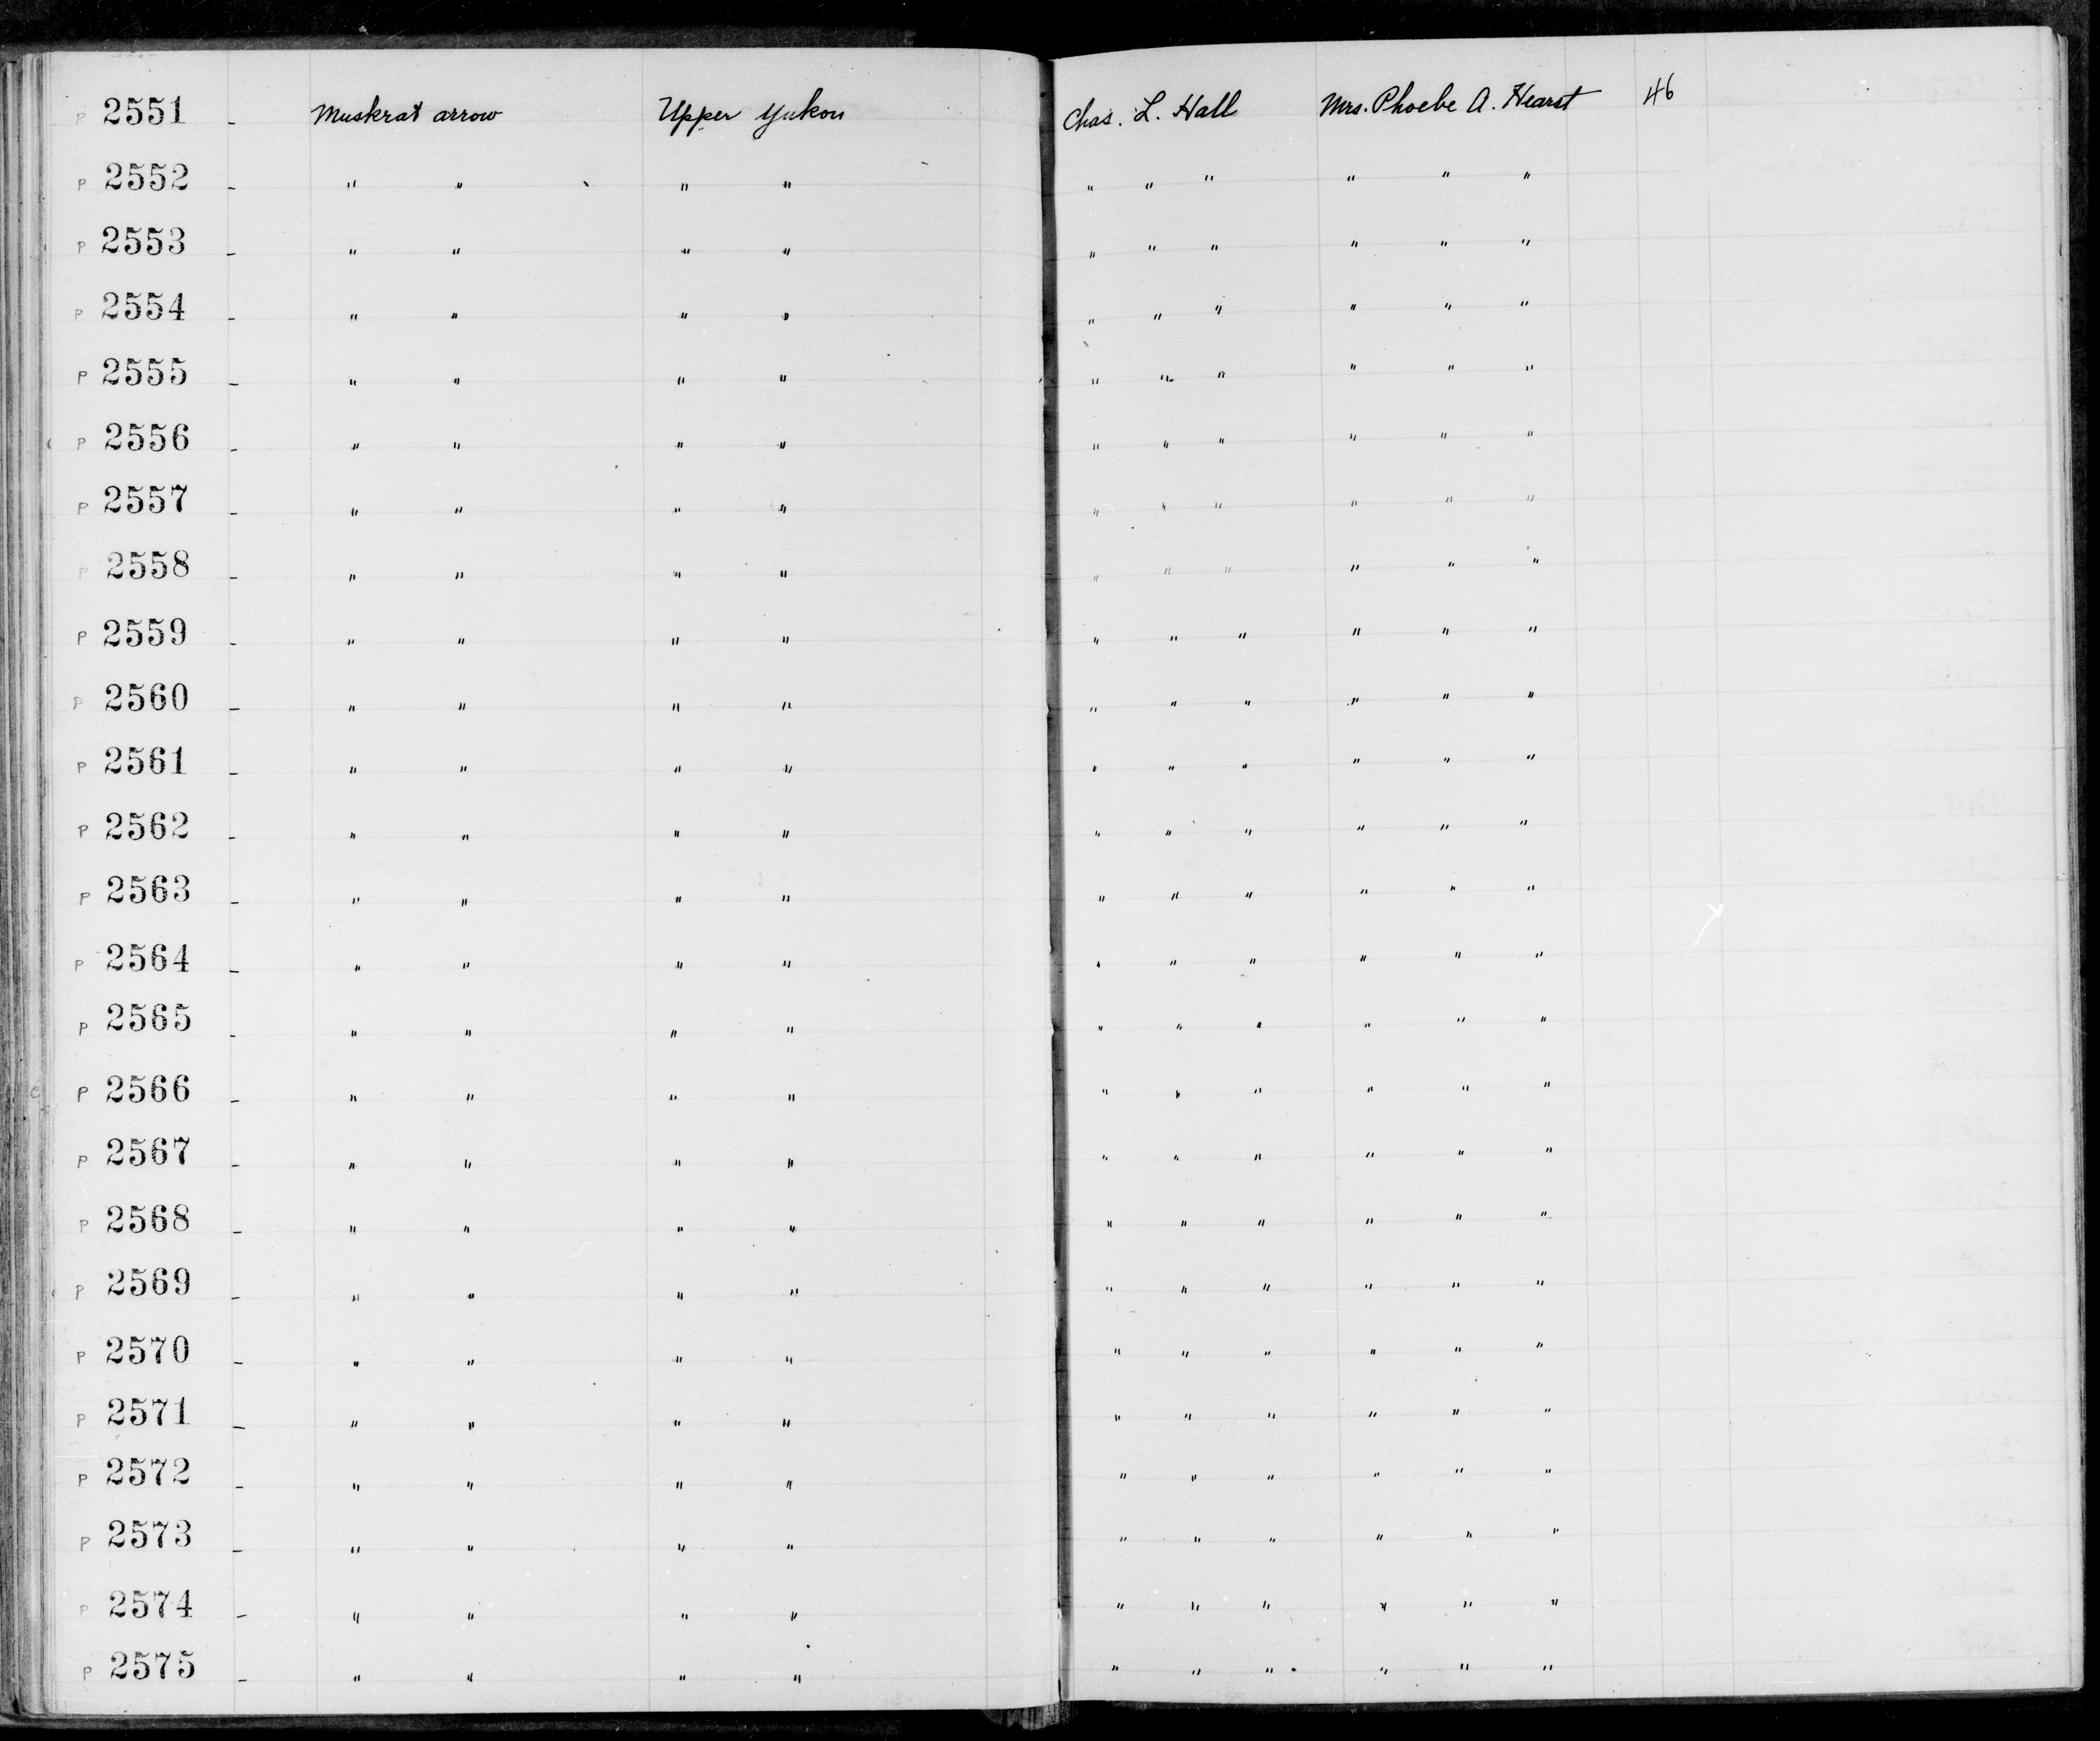 P 2551 - Muskrat arrow Upper Yukon Chas. L. Hall Mrs. Phoebe A. Hearst 46
P 2552 - " " " " " " " " " "
P 2553 - " " " " " " " " " "
P 2554 - " " " " " " " " " "
P 2555 - " " " " " " " " " "
P 2556 - " " " " " " " " " "
P 2557 - " " " " " " " " " "
P 2558 - " " " " " " " " " "
P 2559 - " " " " " " " " " "
P 2560 - " " " " " " " " " "
P 2561 - " " " " " " " " " "
P 2562 - " " " " " " " " " "
P 2563 - " " " " " " " " " "
P 2564 - " " " " " " " " " "
P 2565 - " " " " " " " " " "
P 2566 - " " " " " " " " " "
P 2567 - " " " " " " " " " "
P 2568 - " " " " " " " " " "
P 2569 - " " " " " " " " " "
P 2570 - " " " " " " " " " "
P 2571 - " " " " " " " " " "
P 2572 - " " " " " " " " " "
P 2573 - " " " " " " " " " "
P 2574 - " " " " " " " " " "
P 2575 - " " " " " " " " " "